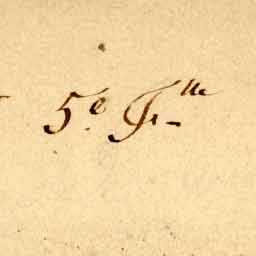 5.e F.lle